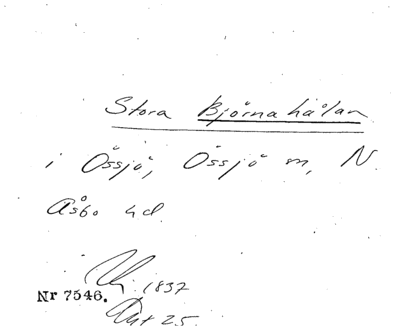 Stora Björnahålan
i Össjö, Össjö sn, N
Åsbo hd.
1837
Nr 7546.
Akt 25.